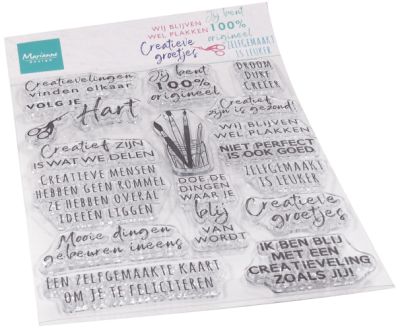 Marianne
DESIGN
WIJ BLIJVEN
WEL PLAKKEN
Creatieve
groetjes
Jij bent
100%
origineel
ZELFGEMAAKT
IS LEUKER
Creatievelingen
vinden elkaar
VOLG JE
Hart
Jij bent
100%
origineel
DROOM
DURF
CREËER
Creatief
zijn is gezond!
WIJ BLIJVEN
WEL PLAKKEN
NIET PERFECT
IS OOK GOED
ZELFGEMAAKT
IS LEUKER
Creatief ZIJN
IS WAT WE DELEN
CREATIEVE MENSEN
HEBBEN GEEN ROMMEL
ZE HEBBEN OVERAL
IDEEËN LIGGEN
DOE DE
DINGEN
WAAR JE
blij
VAN
WORDT
Creatieve
groetjes
Mooie dingen
gebeuren ineens
EEN ZELFGEMAAKTE KAART
OM JE TE FELICITEREN
IK BEN BLIJ
MET EEN
CREATIEVELING
ZOALS JIJ!